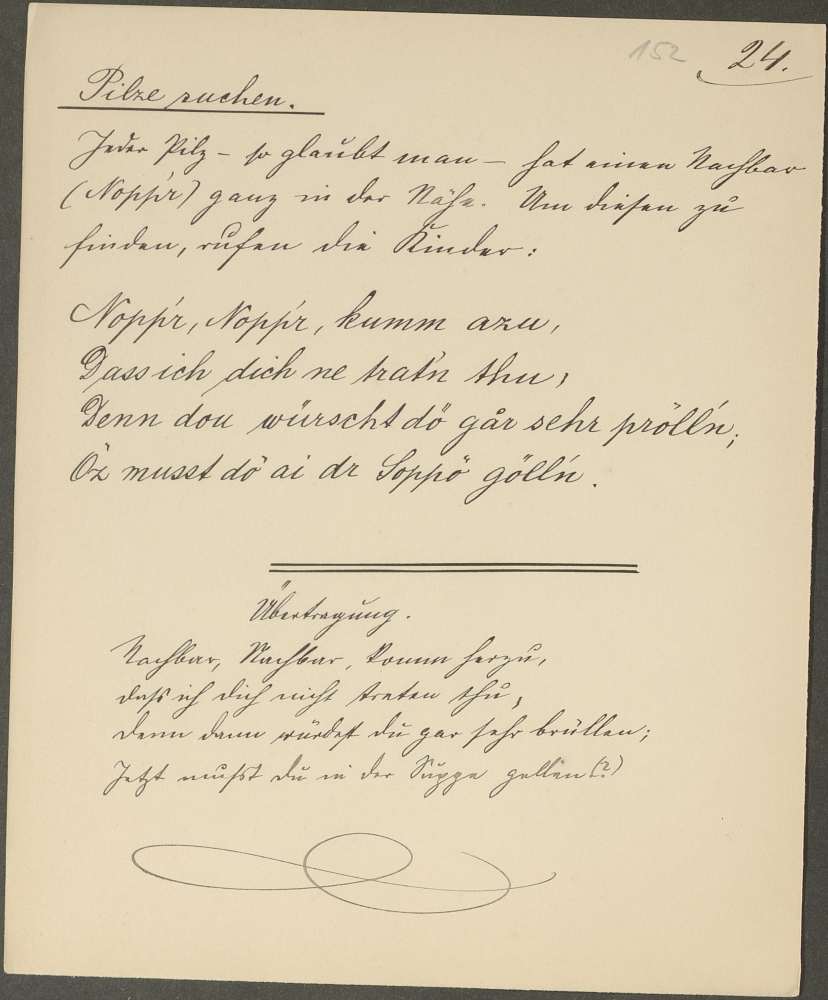 152 24.
Pilze suchen.
Jeder Pilz – so glaubt man – hat einen Nachbar
(Nopp'r) ganz in der Nähe. Um diesen zu
finden, rufen die Kinder:
Nopp'r, Nopp'r, kumm azu,
Dass ich dich ne trat'n thu,
Denn dou würscht dö går sehr pröll'n;
Öz musst dö ai dr Soppö göll'n.
Übertragung.
Nachbar, Nachbar, komm herzu,
daß ich dich nicht treten thu,
denn dann würdest du gar sehr brüllen;
Jetzt mußt du in der Suppe gellen (?)